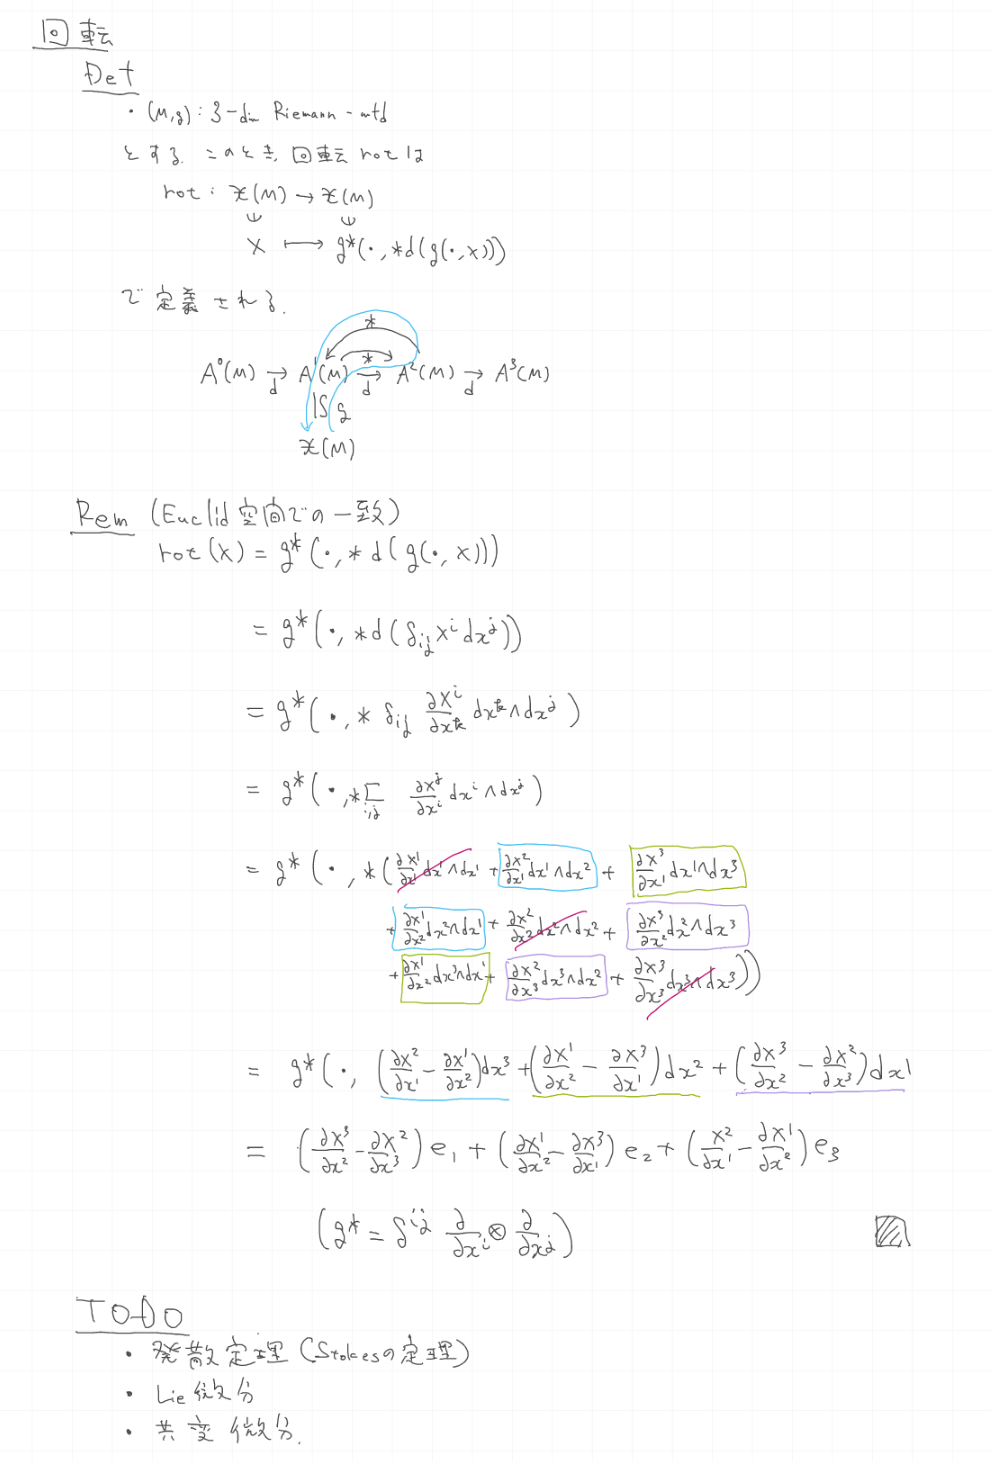 回転
Def
・(M,g) : 3-dim Riemann-mfd
とする. このとき, 回転 rot は
rot : 𝔛(M) → 𝔛(M)
∪ ∪
X ⟼ g*(・, *d(g(・,X)))
で定義される.
* *
A⁰(M) →d A¹(M) →d A²(M) →d A³(M)
l∫ g
𝔛(M)
Rem (Euclid空間での一致)
rot(X) = g*(・, *d(g(・,X)))
= g*(・, *d(δ_ij X^i dx^j))
= g*(・, * δ_ij ∂X^i/∂x^k dx^k∧dx^j)
= g*(・, *Σ_{i,j} ∂X^j/∂x^i dx^i∧dx^j)
= g*(・, *(∂X^1/∂x^1 dx^1∧dx^1 + ∂X^2/∂x^1 dx^1∧dx^2 + ∂X^3/∂x^1 dx^1∧dx^3
+ ∂X^1/∂x^2 dx^2∧dx^1 + ∂X^2/∂x^2 dx^2∧dx^2 + ∂X^3/∂x^2 dx^2∧dx^3
+ ∂X^1/∂x^2 dx^3∧dx^1 + ∂X^2/∂x^3 dx^3∧dx^2 + ∂X^3/∂x^3 dx^3∧dx^3))
= g*(・, (∂X^2/∂x^1 - ∂X^1/∂x^2)dx^3 + (∂X^1/∂x^2 - ∂X^3/∂x^1)dx^2 + (∂X^3/∂x^2 - ∂X^2/∂x^3)dx^1
= (∂X^3/∂x^2 - ∂X^2/∂x^3) e_1 + (∂X^1/∂x^2 - ∂X^3/∂x^1) e_2 + (X^2/∂x^1 - ∂X^1/∂x^2) e_3
(g* = δ^ij ∂/∂x^i ⊗ ∂/∂x^j)
TODO
・発散定理 (Stokesの定理)
・Lie微分
・共変微分.